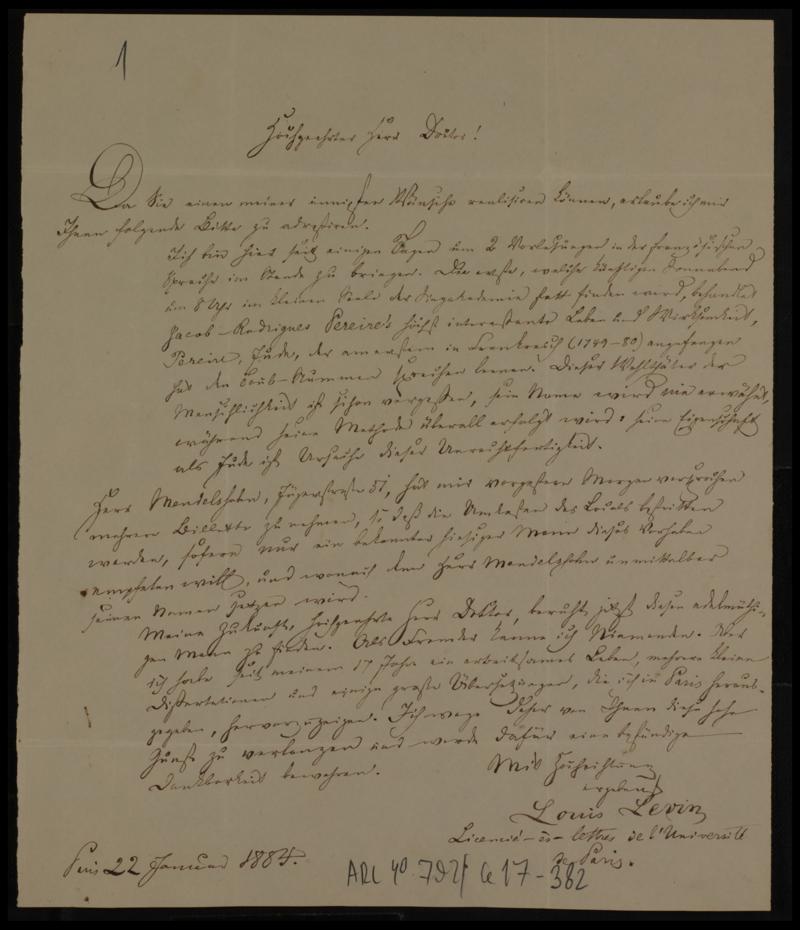 1
Hochgeehrter Herr Doktor!
Da Sie einen meiner innigsten Wünsche realisiren können, erlaube ich mir
Ihnen folgende Bitte zu adressiren.
Ich bin hier seit einigen Tagen um 2 Vorlesungen in der französischen
Sprache im Stande zu bringen. Die erste, welche künftigen Sonnabend
um 8 Uhr im kleinen Saale der Singakademie statt finden wird, behandelt
Jacob-Rodrigues Pereire's höchst interessante Leben und Wirksamkeit,
Pereire, Jude, der am ersten in Frankreich (1749-80) angefangen
hat den Taub-Stummen sprechen lernen. Dieser Wohlthäter der
Menschlichkeit ist schon vergessen, sein Name wird nie erwähnt,
während seine Methode überall erfolgt wird: seine Eigenschaft
als Jude ist Ursache dieser Unrechtfertigkeit.
Herr Mendelssohn, Jägerstrasse 51, hat mir vorgestern Morgen versprochen
mehrere Billette zu nehmen, so daß die Unkosten des Locals bestritten
werden, sofern nur ein bekannter hiesiger Mann dieses Vorhaben
empfelen will, und wonach dem Herr Mendelssohn unmittelbar
seinen Namen setzen wird.
Meine Zukunft, hochgeehrter Herr Doktor, beruht jetzt diesen edelmüthi-
gen Mann zu finden. Als Fremder kenne ich Niemanden. Aber
ich habe seit meinem 17 Jahre ein arbeitsames Leben, mehrere kleine
Dissertationen und einige große Übersetzungen, die ich in Paris heraus-
gegeben, hervorzuzeigen. Ich wage daher von Ihnen diese hohe
Gunst zu verlangen und werde dafür eine beständige
Dankbarkeit bewahren.
Mit Hochachtung
ergebenst
Louis Levin
Licencié-ès-lettres de l'Université
de Paris.
22 Januar 1884.
ARC 4° 792/ C17-382